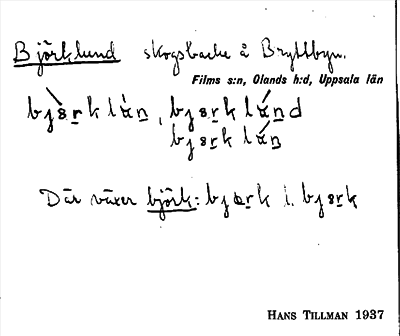 Björklund skogsbacke å Bryttbyn.
Films s:n, Olands h:d, Uppsala län
bjsrk làn, bjsrk lánd
bjsrk lán
Där växer björk: bjærk l. bjsrk
HANS TILLMAN 1937